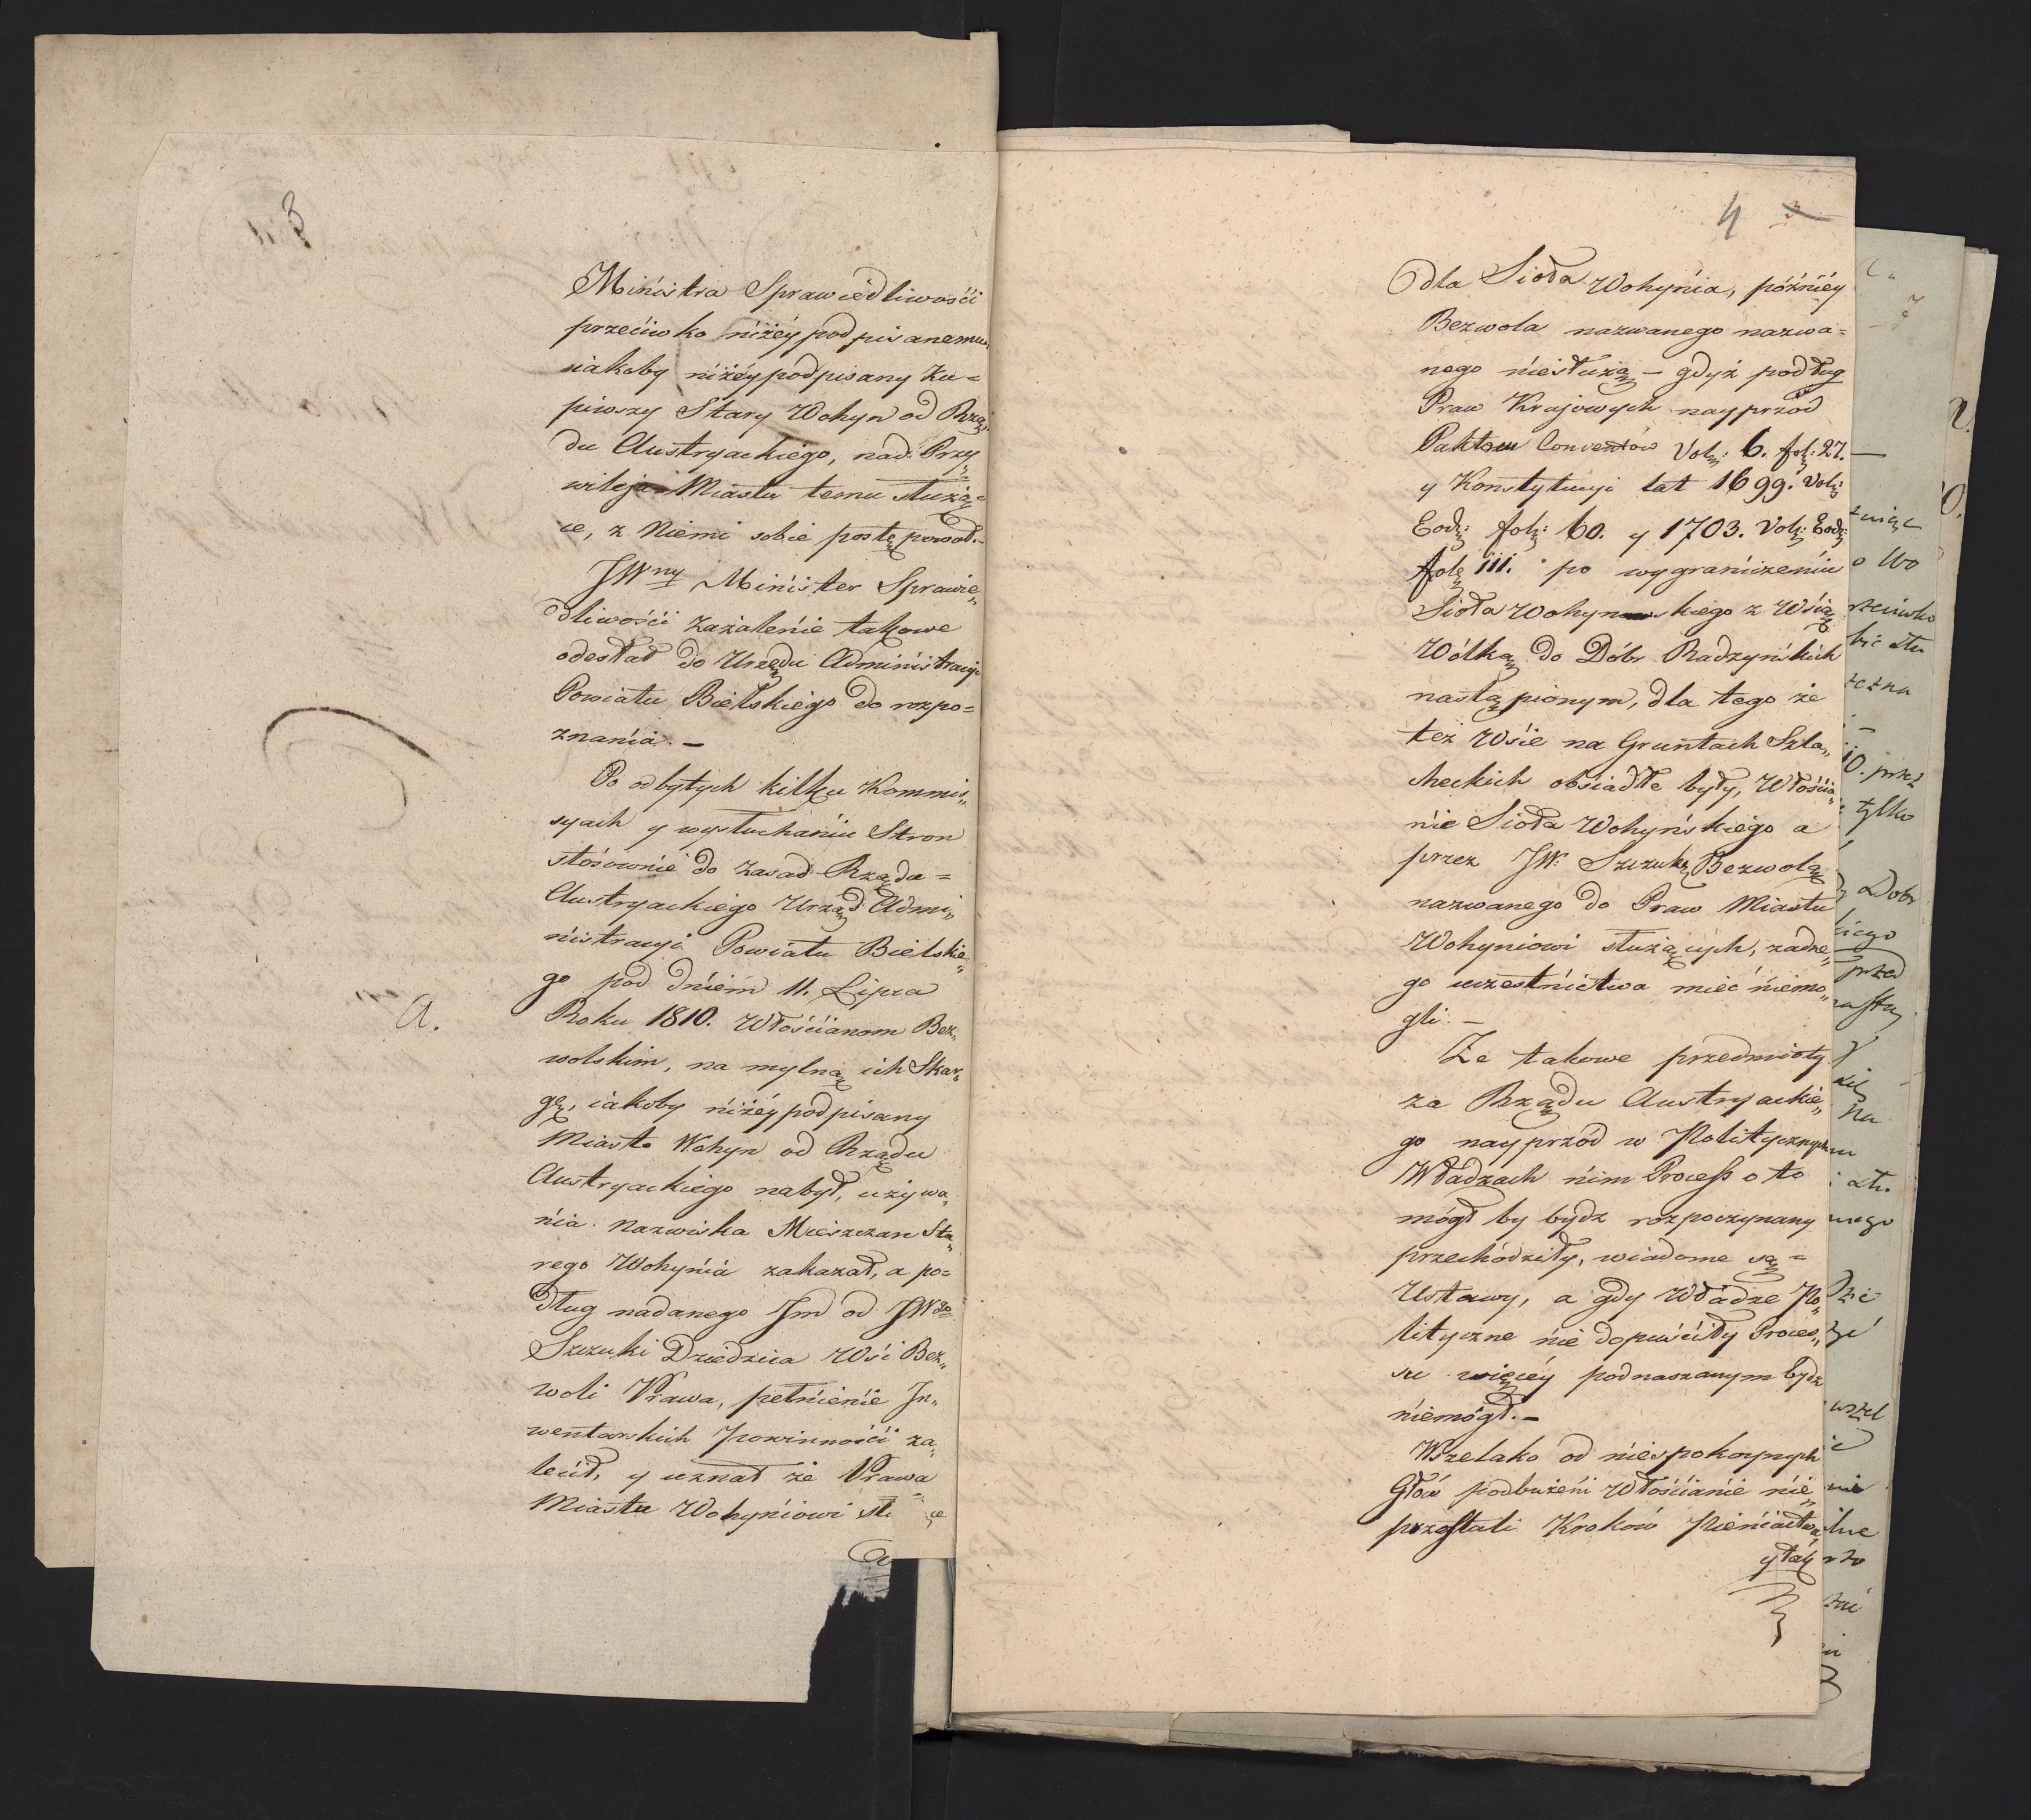 Ministra Sprawiedliwości
przeciwko niżéy podpisanemu,
iakoby niżéy podpisany Ku=
piwszy Stary Wohyn od Rzą„
du Austryackiego, nad Przy„
wileja Miastu temu służą=
ce, z Niemi sobie postępował.
JWny Minister Sprawie„
dliwości zażalenie takowe
odesłał do Urzędu Administracyi
Powiatu Bielskiego do rozpo=
znania. —
Po odbytych kilku Kommis„
syach y wysłuchaniu Stron
stósownie do zasad Rządu=
Austryackiego Urząd Admi„
nistracyi Powiatu Bielskie„
go pod dniem 11. Lipca
a.
Roku 1810. Włościanom Bez„
wolskim, na mylną ich Skar„
gę, iakoby niżéy podpisany
Miasto Wohyn od Rządu
Austryackiego nabył, używa„
nia Nazwiska Mieszczan Sta„
rego Wohynia zakazał, a po=
dług nadanego Im od JWgo
Szczuki Dziedzica Wsi Bez„
woli Prawa, pełnienie In„
wentarskich powinności za„
lecił, y uznał że Prawa
Miastu Wohyniowi
4
dla Sioła Wohynia, późniéy
Bezwola nazwanego nazwa=
nego niesłużą — gdyż podług
Praw Krajowych nayprzód
Paktow Conventów Vol: 6. fol: 27. —
y Konstytucyi lat 1699. Vol:
Eod: fol: 60. y 1703. Vol: Eod:
fol: 111. po wygraniczeniu
Sioła Wohynskiego z Wsią
Wólką do Dóbr Radzyńskich
nastąpionym, dla tego że
też Wsie na Gruntach Szla„
checkich obsiadłe były, Włościa„
nie Sioła Wohyńskiego a
przez JW: Szczukę Bezwolą
nazwanego do Praw Miastu
Wohyniowi służących, żadne„
go uczestnictwa mieć niemo„
gli. —
Ze takowe przedmioty
za Rządu Austryackie„
go nayprzód w Politycznych
Władzach nim Process o to
mógł by bydz rozpoczynany
przechódziły, wiadome są=
Ustawy, a gdy Władze Po„
lityczne nie dopuściły Proces„
su więcéy podnaszanym bydz
niemógł. —
Wszelako od niespokoynych
Głów podbużeni Włościanie nie„
przestali Kroków Pieniactwa
y tak